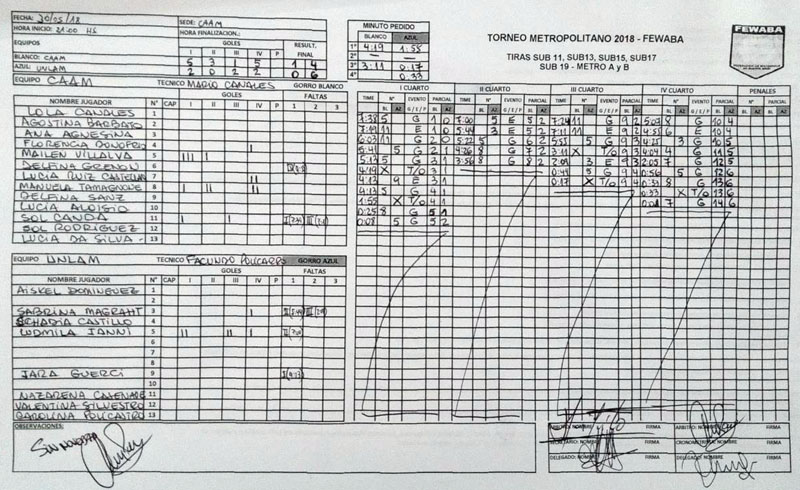 FECHA: 30/05/18
HORA INICIO: 21:00 HS
SEDE: CAAM
HORA FINALIZACION.:
EQUIPOS GOLES RESULT. FINAL
I II III IV P
BLANCO: CAAM 5 3 1 5 14
AZUL: UNLAM 2 0 2 2 06
MINUTO PEDIDO
BLANCO AZUL
1° 4:19 1:55
2°
3° 3:11 0:17
4° 0:33
TORNEO METROPOLITANO 2018 - FEWABA
TIRAS SUB 11, SUB13, SUB15, SUB17
SUB 19 - METRO A y B
FEWABA
EQUIPO CAAM TECNICO MARIO CANALES GORRO BLANCO
GOLES FALTAS
NOMBRE JUGADOR N° CAP I II III IV P 1 2 3
LOLA CANALES 1
AGOSTINA BARBATO 2
ANA AGNESINA 3
FLORENCIA DONOFRIO 4
MAILEN VILLALVA 5
DELFINA GRENON 6
LUCIA RUIZ CASTELLAN 7
MANUELA TAMAGNONE 8
DELFINA SANZ 9
LUCIA ALOISIO 10
SOL CANDA 11
SOL RODRIGUEZ 12
LUCIA DA SILVA - 13
EQUIPO UNLAM TECNICO FACUNDO POLICARPO GORRO AZUL
GOLES FALTAS
NOMBRE JUGADOR N° CAP I II III IV P 1 2 3
AISKEL DOMINGUEZ 1
2
SABRINA MAGRAHT 3
SCHADIA CASTILLO 4
LUDMILA IANNI 5
6
7
8
JARA GUERCI 9
10
NAZARENA CATENARE 11
VALENTINA SILVESTRO 12
CAROLINA POLICASTRO 13
I CUARTO
TIME N° EVENTO PARCIAL
BL AZ G/E/P BL AZ
7:38 5 G 1 0
7:19 11 E 1 0
6:03 11 G 2 0
5:41 5 G 2 1
5:13 5 G 3 1
4:19 X T/O 3 1
4:13 9 E 3 1
4:13 5 G 4 1
1:55 X T/O 4 1
0:25 8 G 5 1
0:08 5 G 5 2
II CUARTO
TIME N° EVENTO PARCIAL
BL AZ G/E/P BL AZ
7:00 5 E 5 2
5:44 3 E 5 2
5:22 5 G 6 2
4:26 8 G 7 2
3:56 8 G 8 2
III CUARTO
TIME N° EVENTO PARCIAL
BL AZ G/E/P BL AZ
7:24 11 G 9 2
7:11 11 E 9 2
5:55 5 G 9 3
3:11 X T/O 9 3
2:09 3 E 9 3
0:49 5 G 9 4
0:17 X T/O 9 4
IV CUARTO
TIME N° EVENTO PARCIAL
BL AZ G/E/P BL AZ
5:07 8 G 10 4
4:55 6 E 10 4
4:25 3 G 10 5
4:04 4 G 11 5
2:03 7 G 12 5
0:56 5 G 12 6
0:37 8 G 13 6
0:33 X T/O 13 6
0:01 7 G 14 6
PENALES
N° PARCIAL
BL AZ BL AZ
OBSERVACIONES:
SIN NOVEDAD
NOMBRE FIRMA ARBITRO: NOMBRE FIRMA
SECRETARIO: NOMBRE FIRMA CRONOMETRISTA: NOMBRE FIRMA
DELEGADO: NOMBRE FIRMA DELEGADO: NOMBRE FIRMA